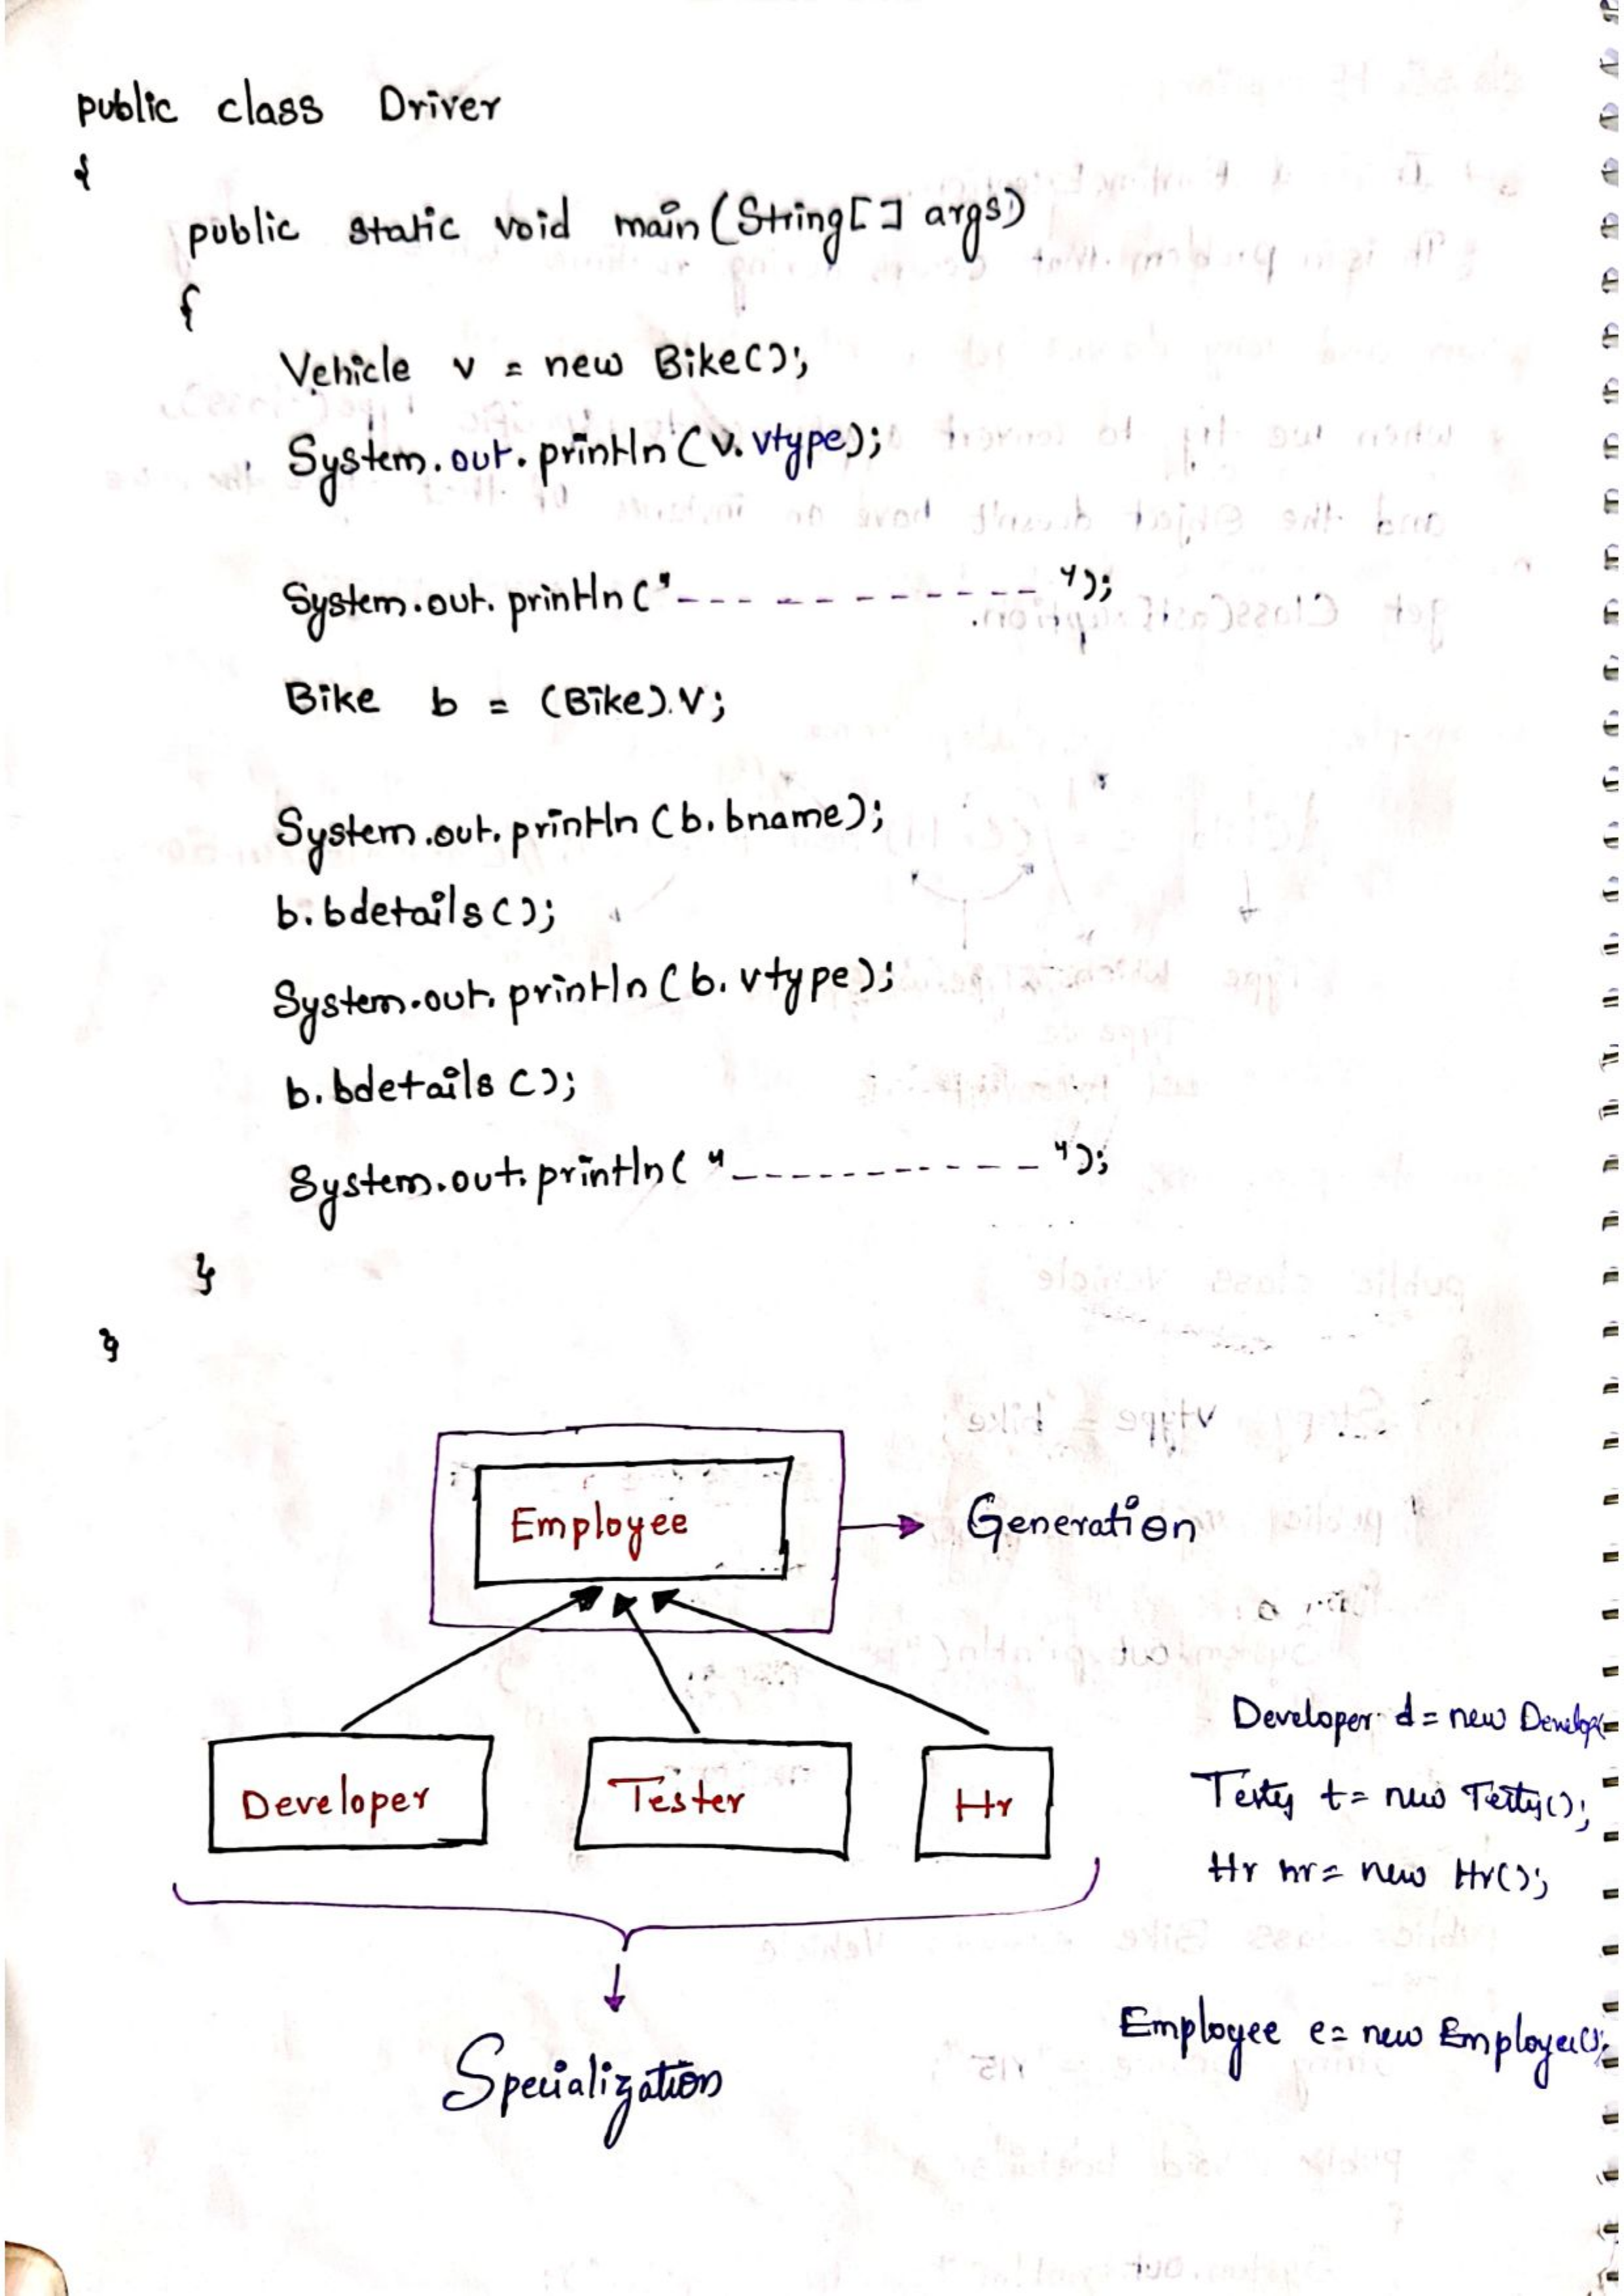 public class Driver
{
public static void main(String[] args)
{
Vehicle v = new Bike();
System.out.println(v.vtype);
System.out.println("------------");
Bike b = (Bike).v;
System.out.println(b.bname);
b.bdetails();
System.out.println(b.vtype);
b.bdetails();
System.out.println("-----------");
}
}
Employee
Generation
Developer
Tester
Hr
Developer d = new
t = new
Hr hr = new Hr();
Specialization
Employee e = new Employee();